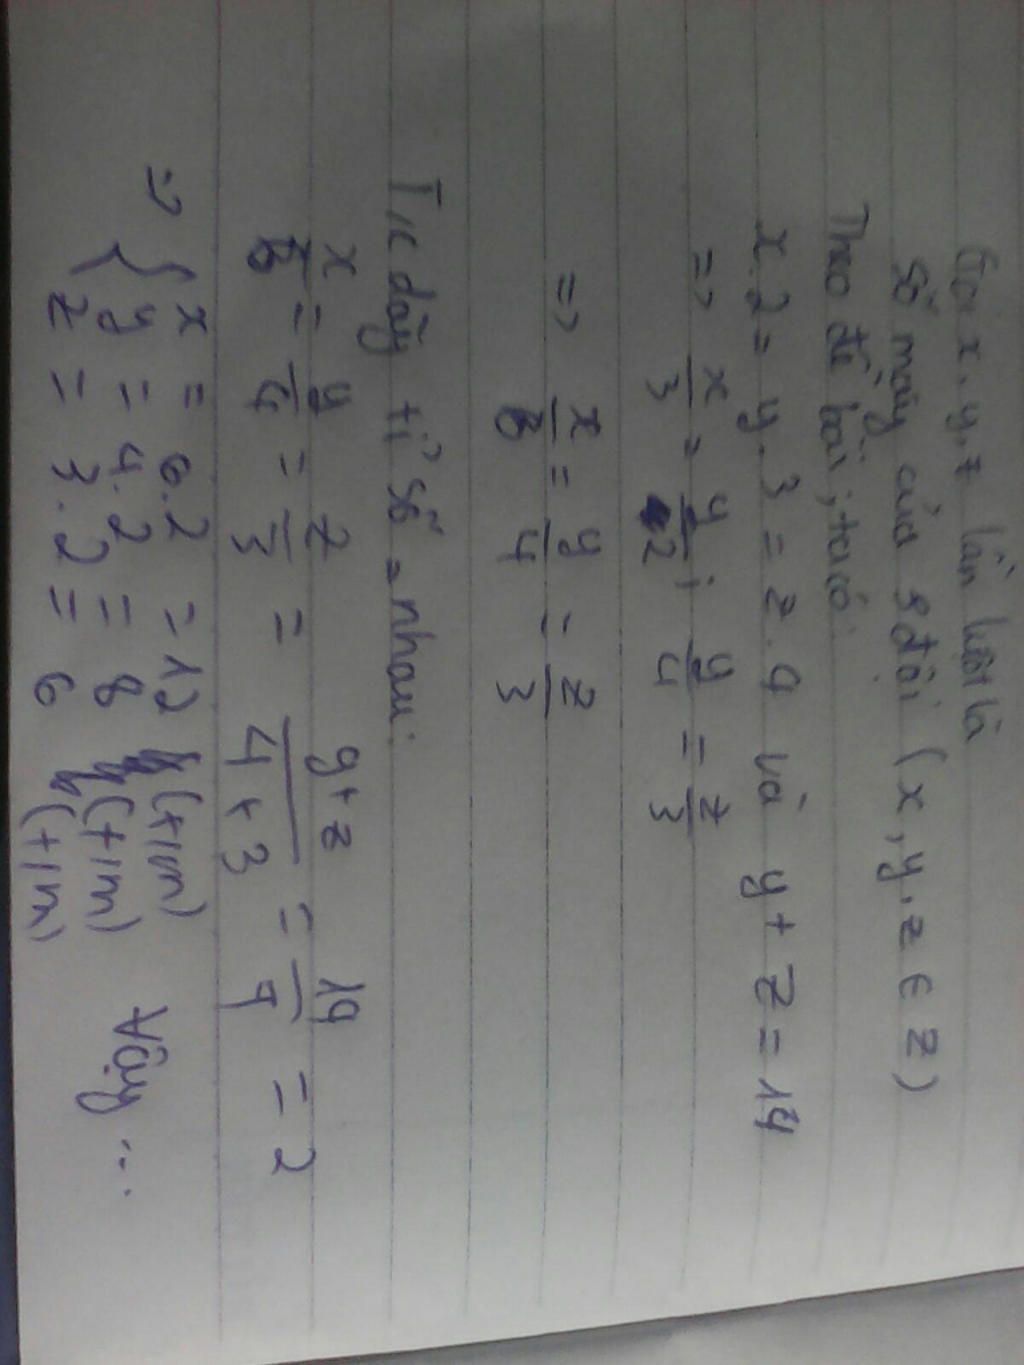 Gọi x, y, z lần lượt là
số máy của 3 đội (x, y, z ∈ Z)
Theo đề bài, ta có:
x.2 = y.3 = z.4 và y + z = 14
=> x/3 = y/2 ; y/4 = z/3
=> x/6 = y/4 = z/3
T/c dãy tỉ số = nhau:
x/6 = y/4 = z/3 = y+z/4+3 = 14/7 = 2
=> { x = 6.2 = 12 (+/m)
y = 4.2 = 8 (+/m)
z = 3.2 = 6 (+/m)
Vậy ...